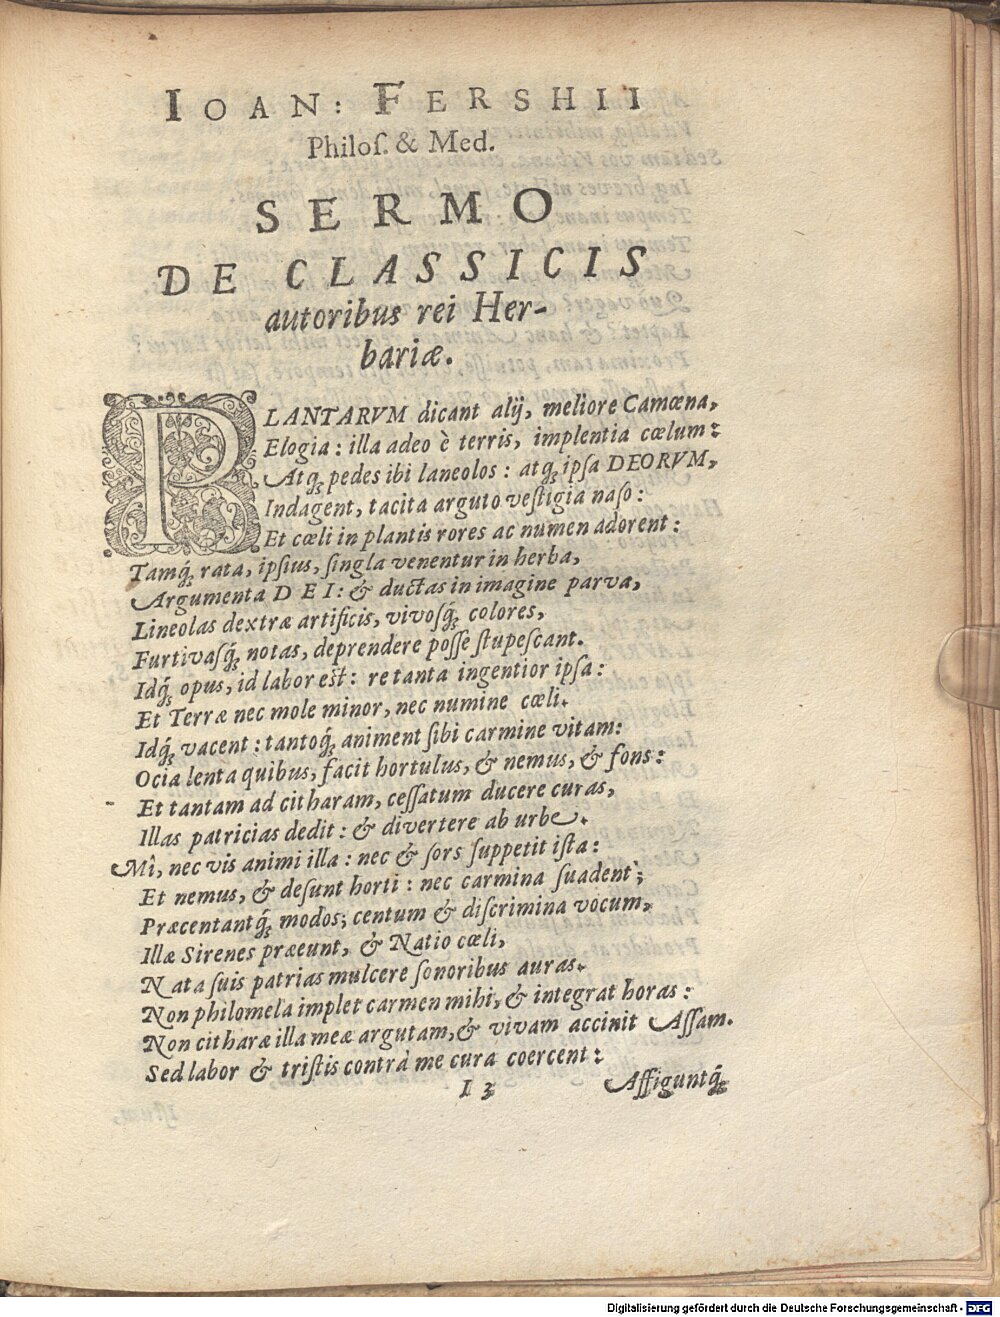 IOAN: FERSHII
Philoſ. & Med.
SERMO
DE CLASSICIS
autoribus rei Her-
bariæ.
PLANTARVM dicant alij, meliore Camœna,
Elogia: illa adeo è terris, implentia cœlum:
Atq́; pedes ibi laneolos: atq́; ipſa DEORVM,
Indagent, tacita arguto veſtigia naſo:
Et cœli in plantis rores ac numen adorent:
Tamq́; rata, ipſius, ſingla venentur in herba,
Argumenta DEI: & ductas in imagine parva,
Lineolas dextræ artificis, vivoſq́; colores,
Furtivaſq́; notas, deprendere poſſe ſtupeſcant.
Idq́; opus, id labor est: re tanta ingentior ipſa:
Et Terræ nec mole minor, nec numine cœli.
Idq́; vacent: tantoq́; animent ſibi carmine vitam:
Ocia lenta quibus, facit hortulus, & nemus, & fons:
Et tantam ad citharam, ceſſatum ducere curas,
Illas patricias dedit: & divertere ab urbe.
Mî, nec vis animi illa: nec & ſors ſuppetit iſta:
Et nemus, & deſunt horti: nec carmina ſuadent;
Præcentantq́; modos; centum & diſcrimina vocum,
Illæ Sirenes præeunt, & Natio cœli,
Nata ſuis patrias mulcere ſonoribus auras.
Non philomela implet carmen mihi, & integrat horas:
Non citharæ illa meæ argutam, & vivam accinit Aſſam.
Sed labor & triſtis contrà me cura coercent:
I 3
Affiguntq́;
Digitalisierung gefördert durch die Deutsche Forschungsgemeinschaft - DFG